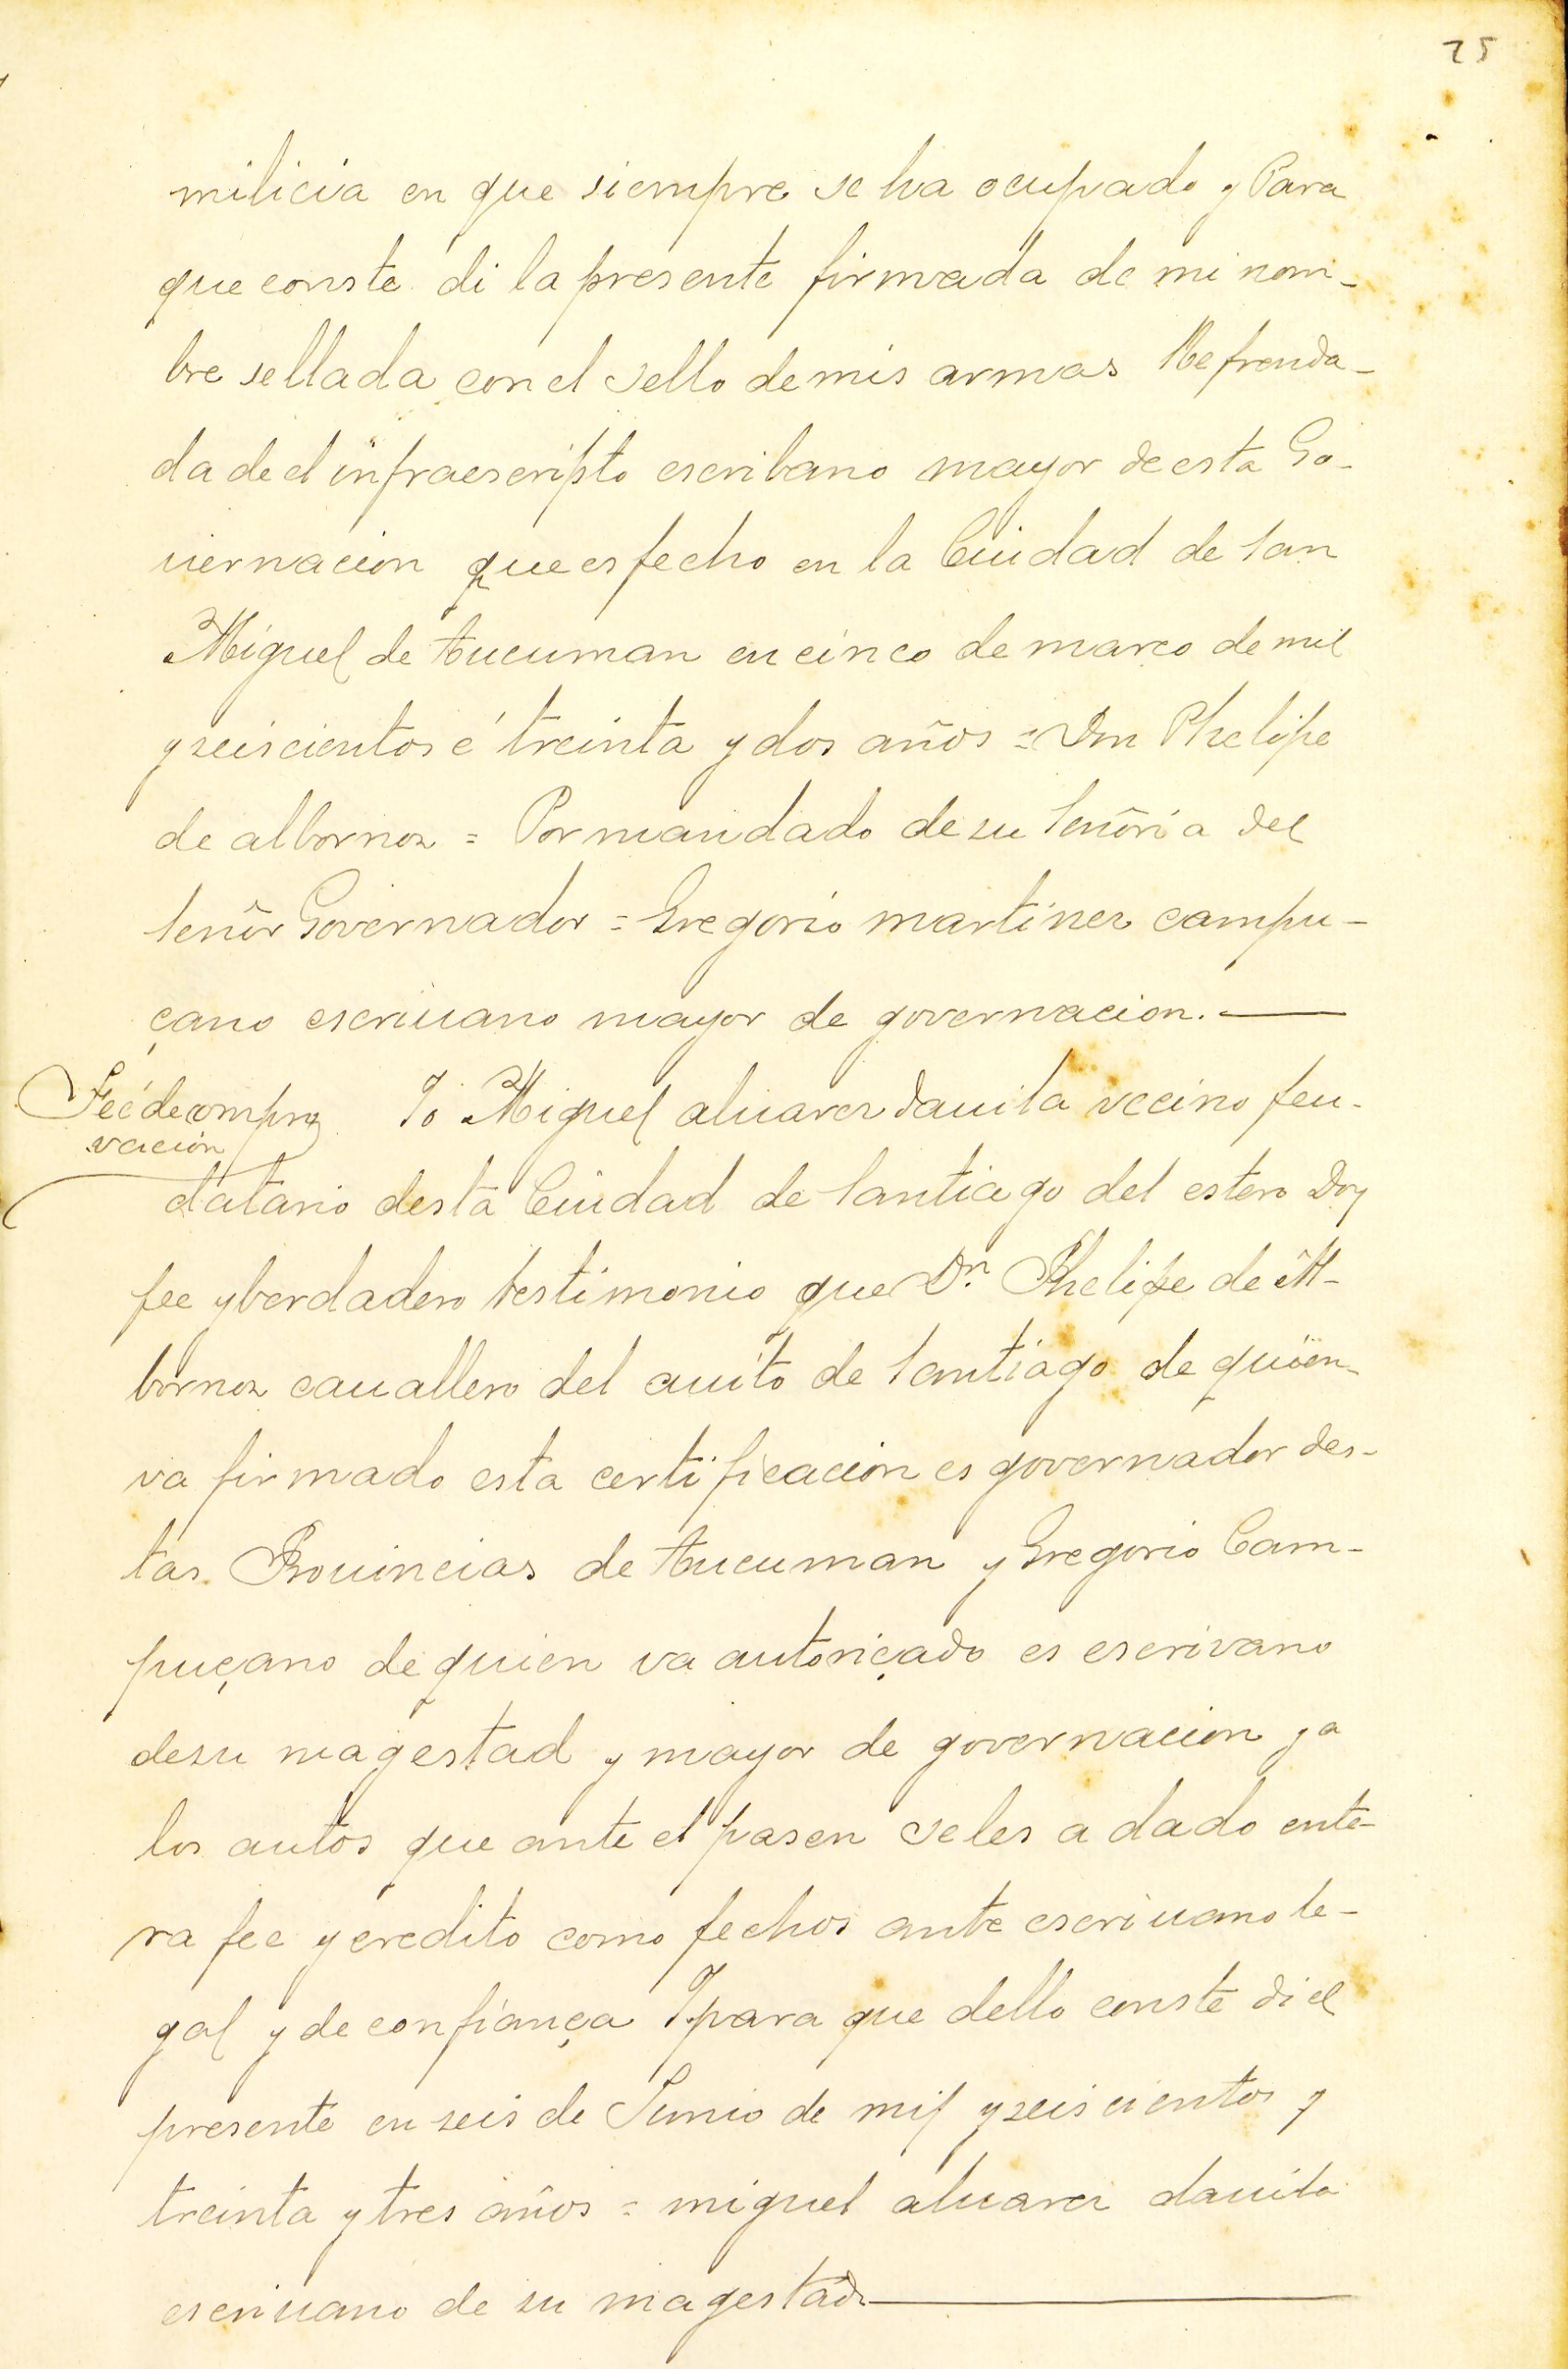 25
milicia en que siempre se ha ocupado y Para
que conste di la presente firmada de mi nom-
bre sellada con el sello de mis armas Refrenda-
da de el infraescripto escribano mayor de esta Go-
uernacion que es fecho en la Ciudad de san
Miguel de tucuman en cinco de março de mil
y seiscientos é treinta y dos años = Don Phelipe
de albornoz = Por mandado de su señoria del
señor Governador = Gregorio martinez campu-
çano escriuano mayor de governacion.
Feé de compro
vacion
Yo Miguel aluarez dauila vecino feu-
datario desta Ciudad de santiago del estero Doy
fee y berdadero testimonio que Dn. Phelipe de Al-
bornoz cauallero del auito de santiago de quien
va firmado esta certificacion es governador des-
tas Prouincias de tucuman y Gregorio Cam-
puçano de quien va autoriçado es escrivano
de su magestad y mayor de governacion y a
los autos que ante el pasen se les a dado ente-
ra fee y credito como fechos ante escriuano le-
gal y de confiança Y para que dello conste di el
presente en seis de Junio de mil y seiscientos y
treinta y tres años = miguel aluarez dauila
escriuano de su magestad